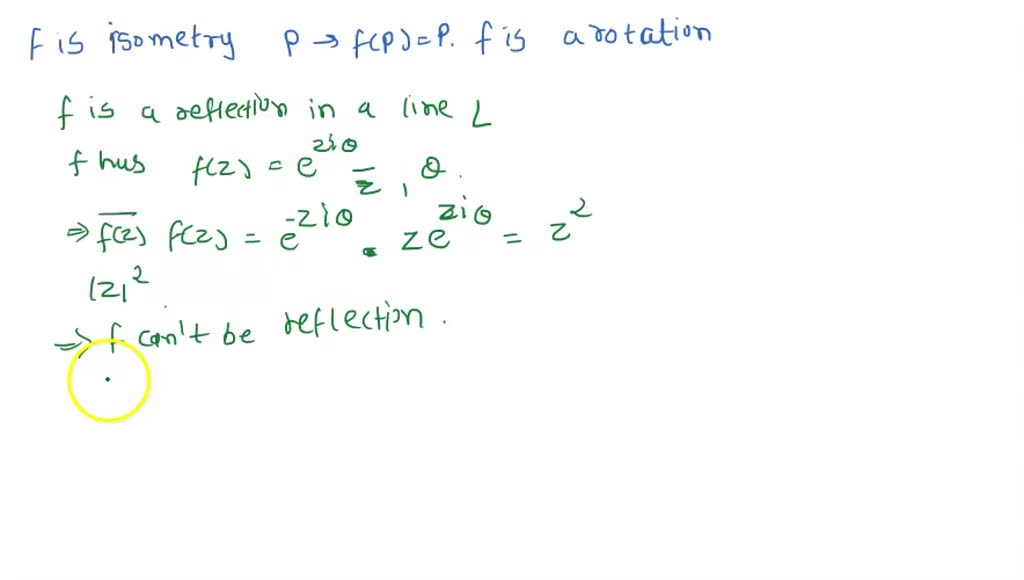 f is isometry P → f(P) = P. f is a rotation
f is a reflection in a line L
f hus f(z) = e^{2iθ} z̅, θ.
⇒ \overline{f(z)} f(z) = e^{-2iθ} . z e^{2iθ} = z^2
|z|^2
⇒ f can't be reflection.